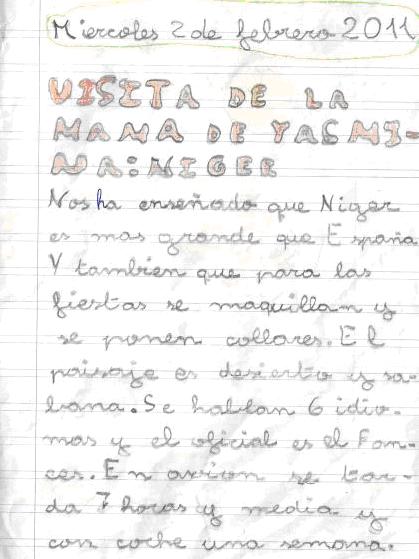 Miercoles 2 de febrero 2011
VISITA DE LA
MAMA DE YASMI-
NA: NIGER
Nos ha enseñado que Niger
es mas grande que España
Y tambien que para las
fiestas se maquillan y
se ponen collares. El
paisaje es desierto y sa-
bana. Se hablan 6 idio-
mas y el oficial es el Fran-
ces. En avion se tar-
da 7 horas y media y
con coche una semana.